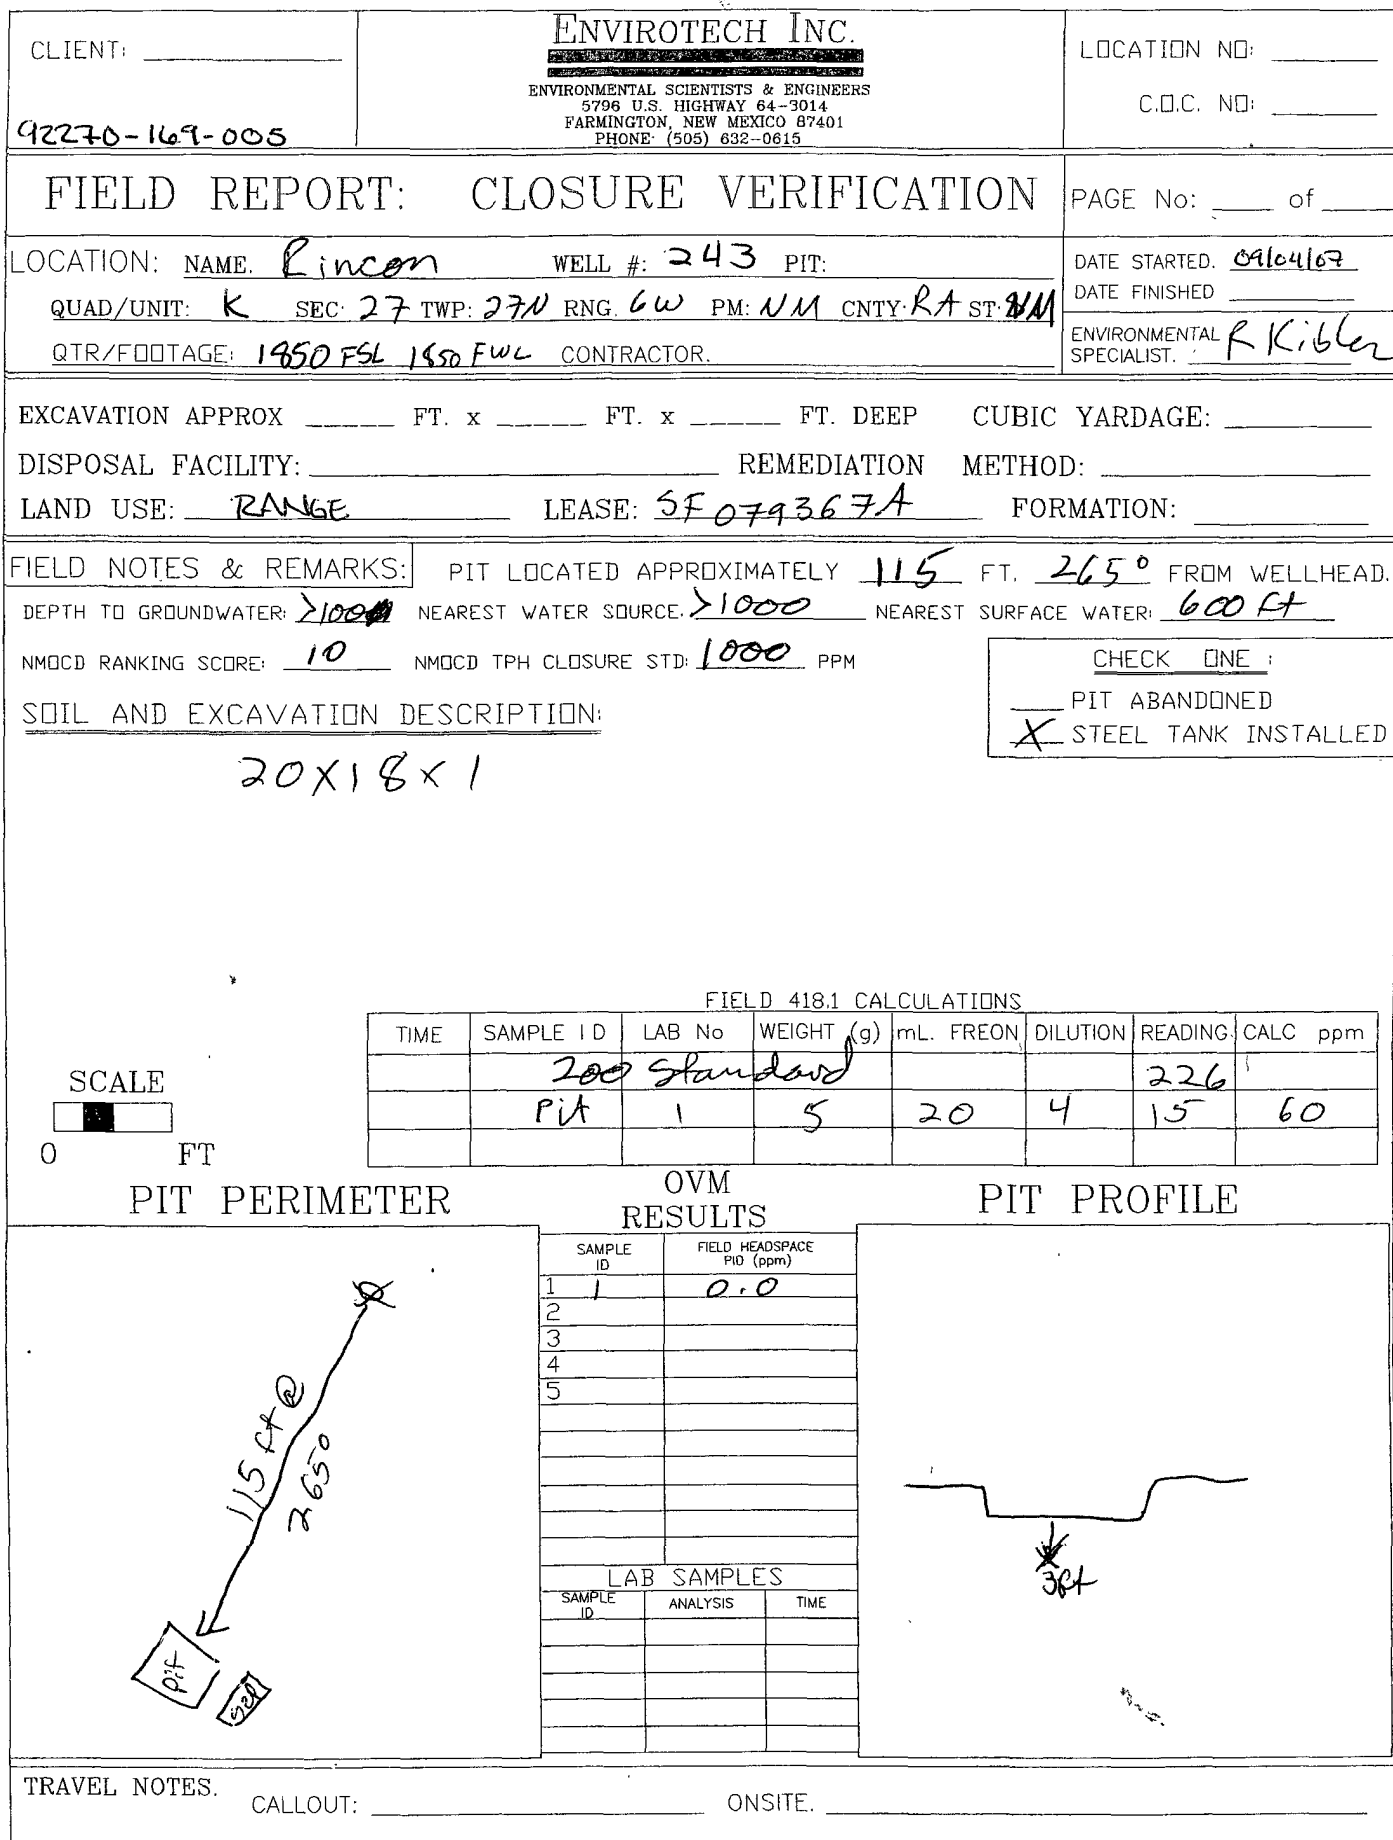 CLIENT:
92270-169-005
ENVIROTECH INC.
ENVIRONMENTAL SCIENTISTS & ENGINEERS
5796 U.S. HIGHWAY 64-3014
FARMINGTON, NEW MEXICO 87401
PHONE: (505) 632-0615
LOCATION NO:
C.O.C. NO:
FIELD REPORT: CLOSURE VERIFICATION
PAGE No: of
LOCATION: NAME. Rincon WELL #: 243 PIT:
QUAD/UNIT: K SEC: 27 TWP: 27N RNG. 6W PM: NM CNTY: RA ST: NM
QTR/FOOTAGE: 1850 FSL 1850 FWL CONTRACTOR.
DATE STARTED. 09/04/07
DATE FINISHED
ENVIRONMENTAL
SPECIALIST. R Kibler
EXCAVATION APPROX FT. x FT. x FT. DEEP CUBIC YARDAGE:
DISPOSAL FACILITY: REMEDIATION METHOD:
LAND USE: RANGE LEASE: SF 079367A FORMATION:
FIELD NOTES & REMARKS: PIT LOCATED APPROXIMATELY 115 FT. 265° FROM WELLHEAD.
DEPTH TO GROUNDWATER: >100 NEAREST WATER SOURCE. >1000 NEAREST SURFACE WATER: 600 ft
NMOCD RANKING SCORE: 10 NMOCD TPH CLOSURE STD: 1000 PPM
CHECK ONE :
PIT ABANDONED
X STEEL TANK INSTALLED
SOIL AND EXCAVATION DESCRIPTION:
20X18X1
FIELD 418.1 CALCULATIONS
TIME SAMPLE I D LAB No WEIGHT (g) mL. FREON DILUTION READING CALC ppm
200 Standard 226
Pit 1 5 20 4 15 60
SCALE
0 FT
PIT PERIMETER
115 ft @
265°
pit
sep
OVM
RESULTS
SAMPLE ID FIELD HEADSPACE PID (ppm)
1 1 0.0
2
3
4
5
LAB SAMPLES
SAMPLE ID ANALYSIS TIME
PIT PROFILE
3ft
TRAVEL NOTES.
CALLOUT: ONSITE.